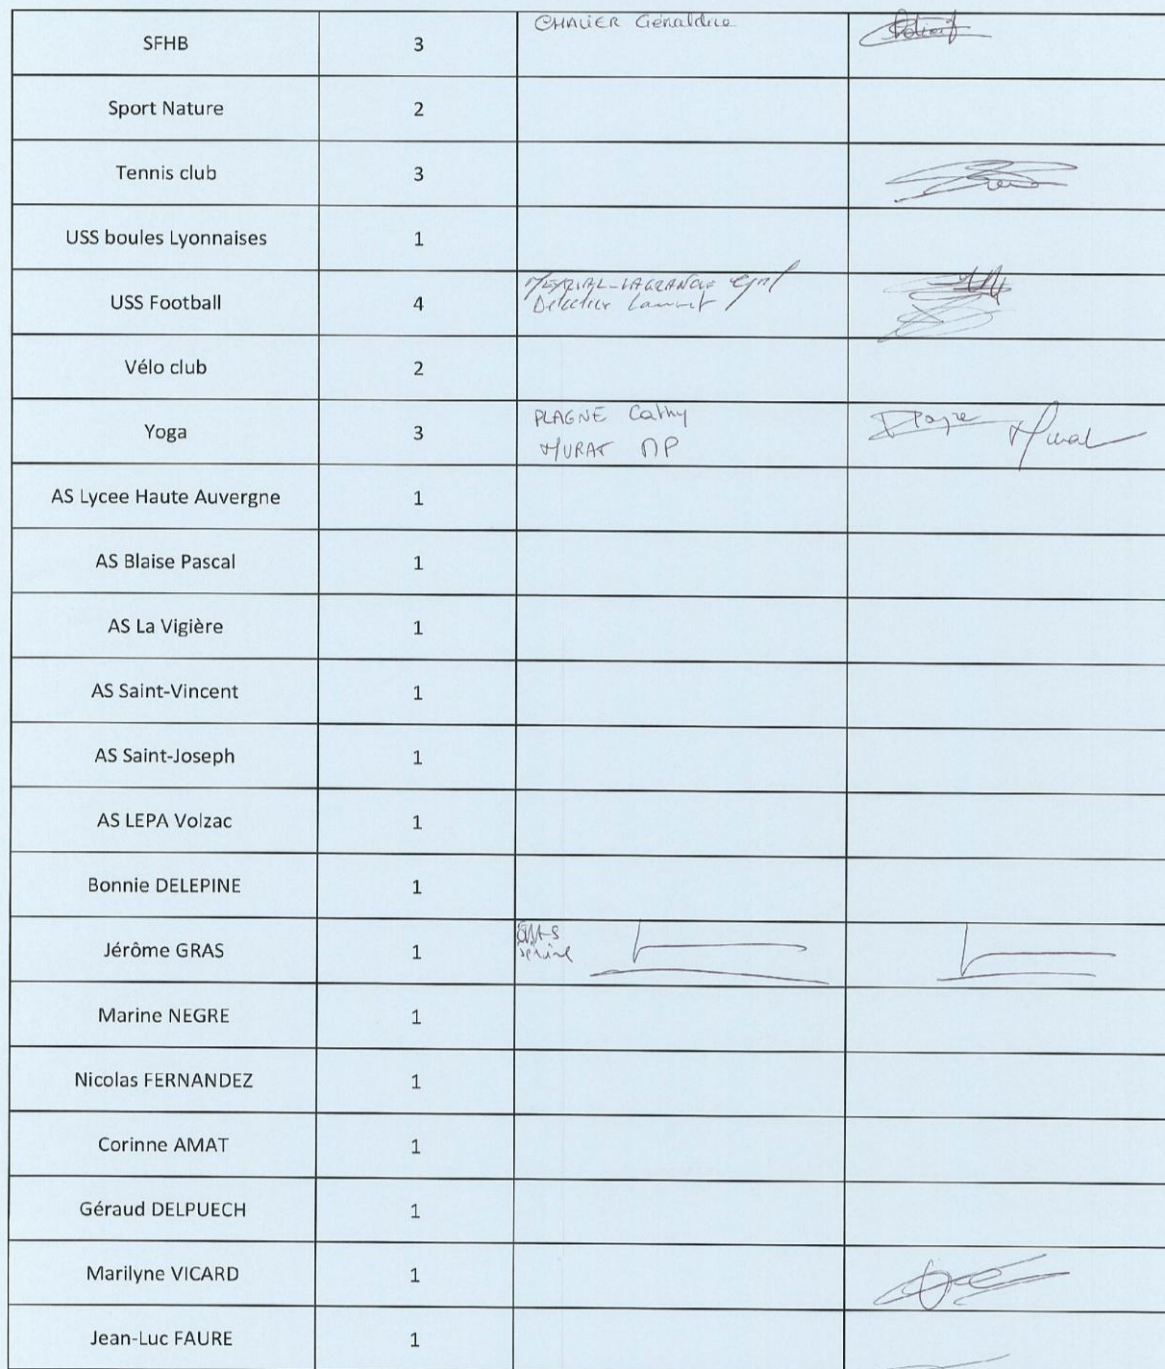 SFHB 3 CHALIER Géraldine
Sport Nature 2
Tennis club 3
USS boules Lyonnaises 1
USS Football 4
Laurent
Vélo club 2
Yoga 3 PLAGNE Cathy
MURAT MP
AS Lycee Haute Auvergne 1
AS Blaise Pascal 1
AS La Vigière 1
AS Saint-Vincent 1
AS Saint-Joseph 1
AS LEPA Volzac 1
Bonnie DELEPINE 1
Jérôme GRAS 1
Marine NEGRE 1
Nicolas FERNANDEZ 1
Corinne AMAT 1
Géraud DELPUECH 1
Marilyne VICARD 1
Jean-Luc FAURE 1